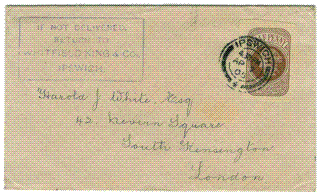 IF NOT DELIVERED,
RETURN TO
WHITFIELD KING & CO.
IPSWICH.
IPSWICH
AP
02
Harold J White, Esq
42, Nevern Square
South Kensington
London